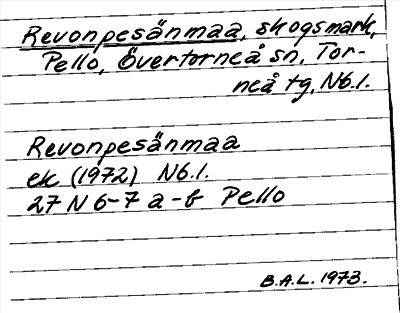 Revonpesänmaa, skogsmark,
Pello, Övertorneå sn, Tor-
neå tg, Nb.l.
Revonpesänmaa
ek (1972) Nb.l.
27 N 6-7 a-b Pello
B.A.L. 1973.